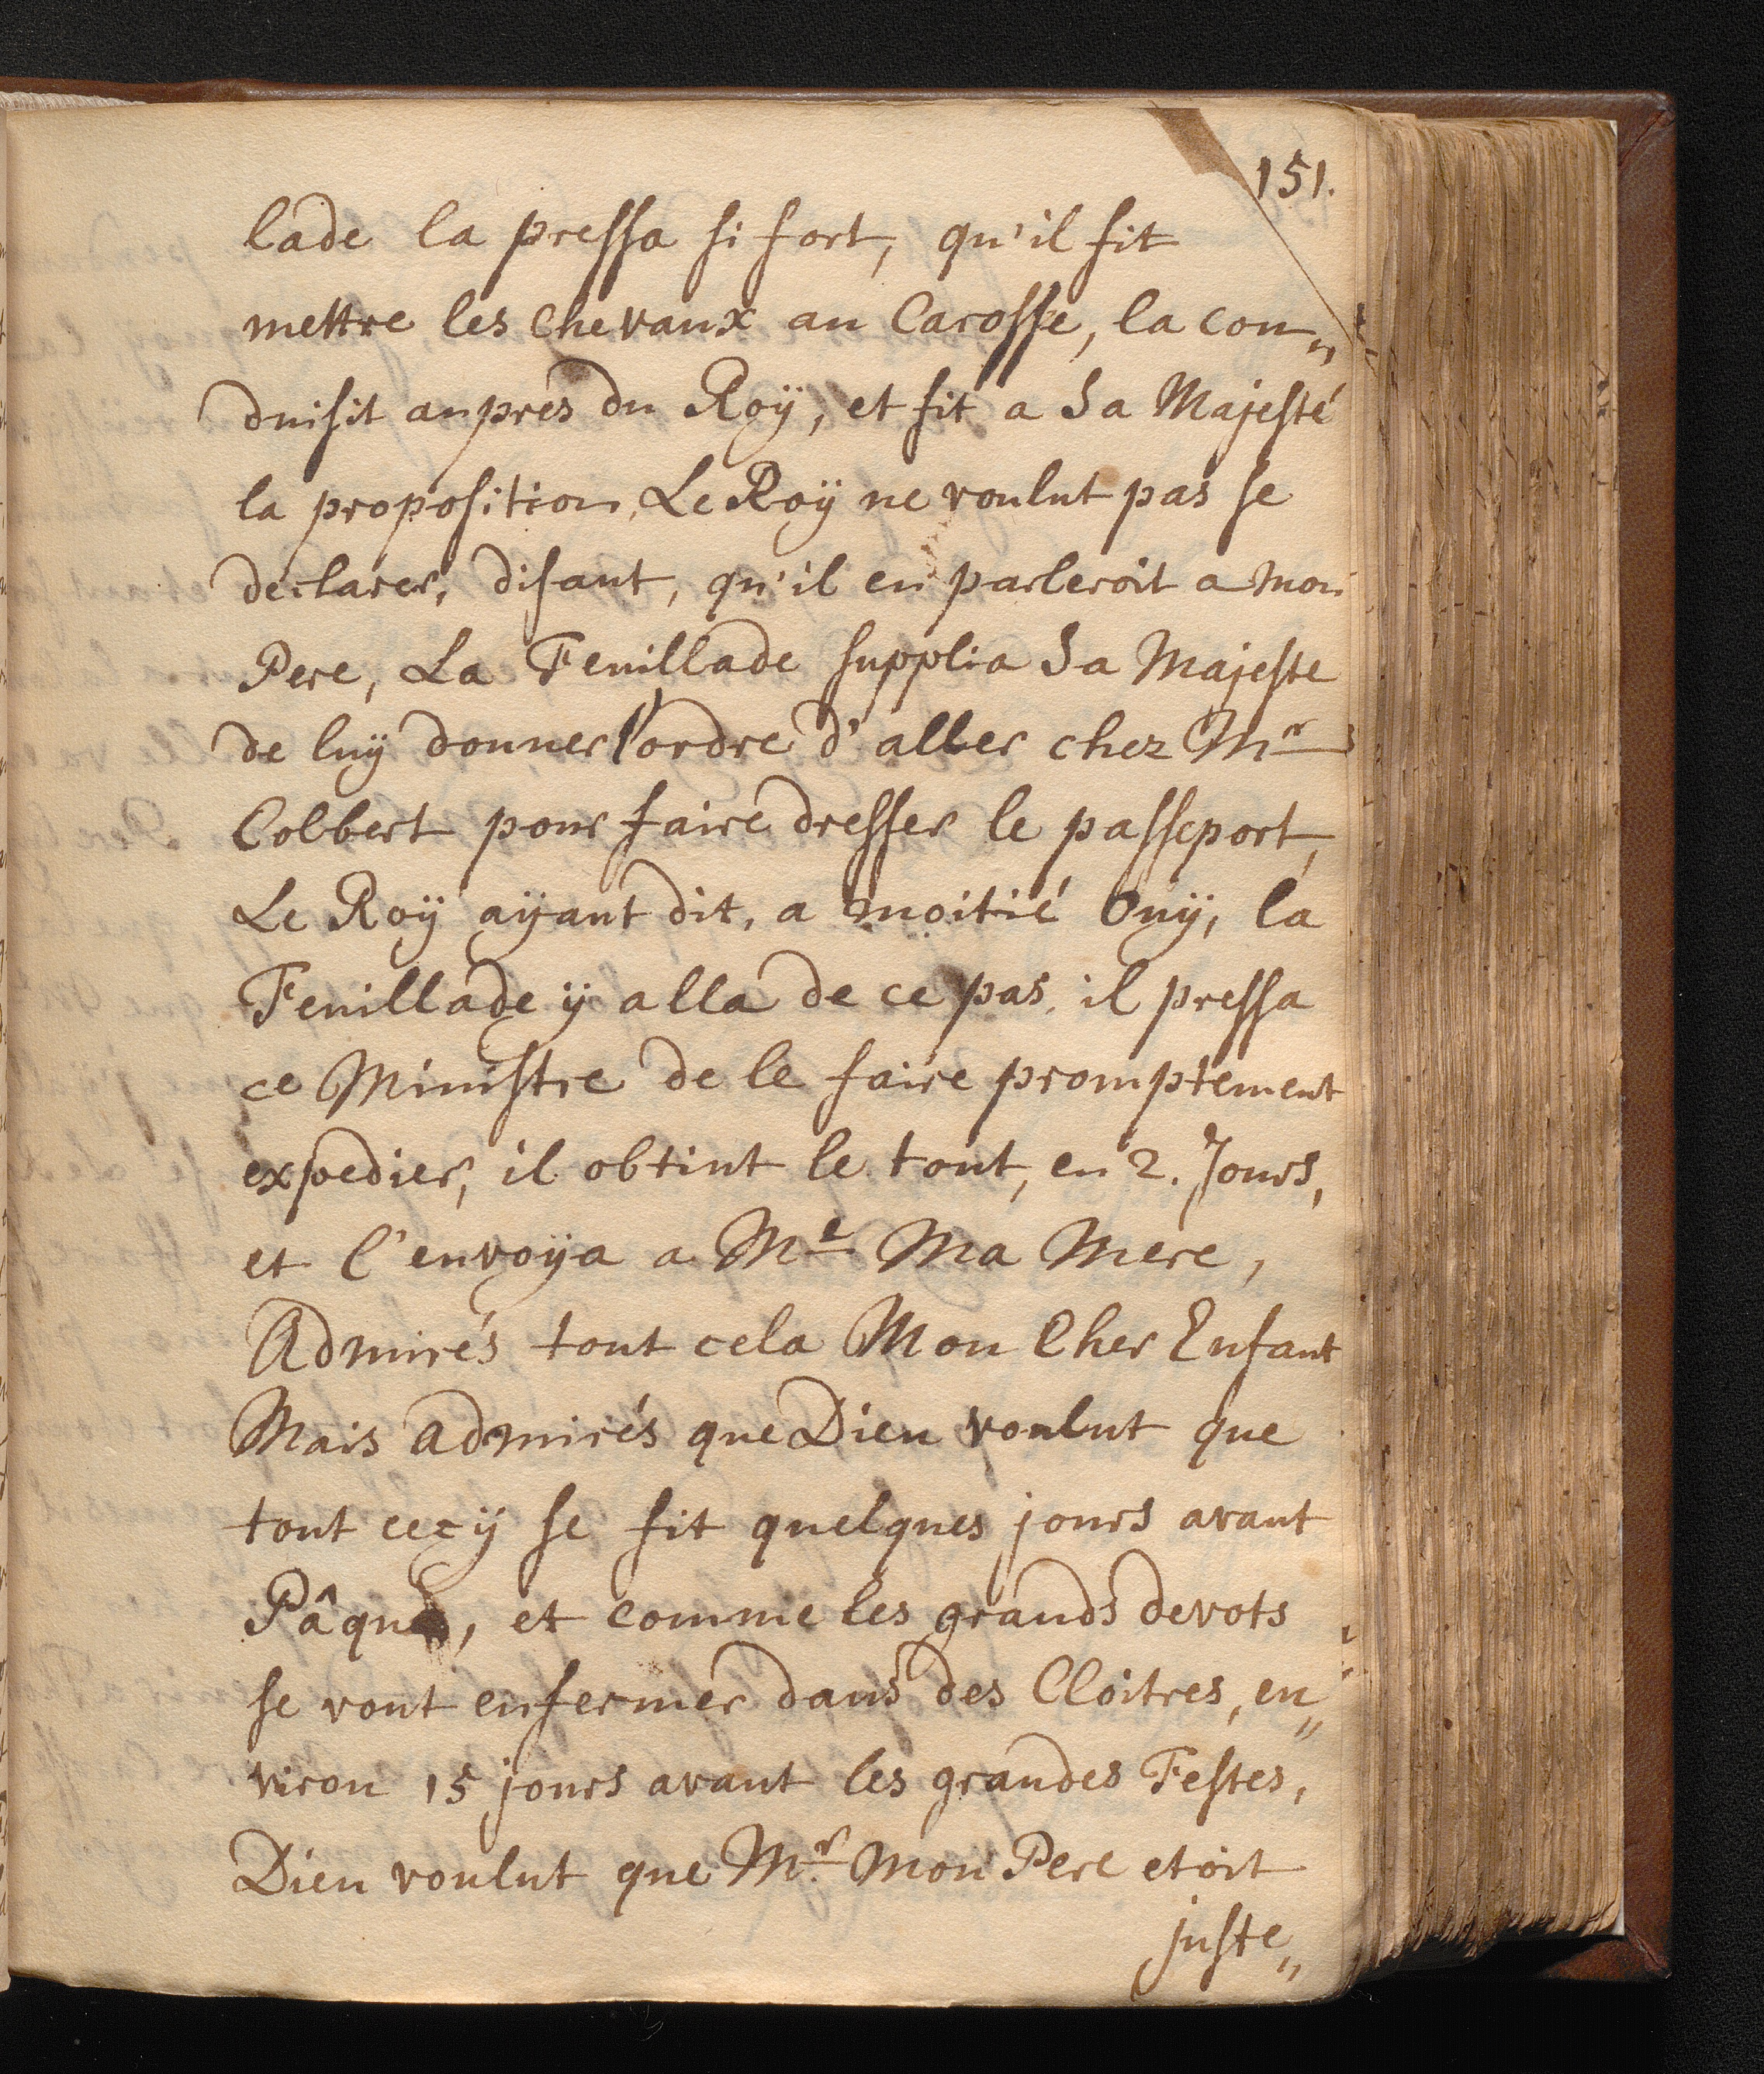 151.
lade la pressa si fort, qu'il fit
mettre les Chevaux au Carosse, la con„
duisit auprés du Roÿ, et fit a Sa Majesté
la proposition, Le Roÿ ne voulut pas se
declarer, disant, qu'il en parleroit a mon
Pere, La Feuillade supplia Sa Majeste
de luÿ donner l'ordre d'aller chez Mr
Colbert pour faire dresser le passeport,
Le Roÿ aÿant dit, a moitié Ouÿ, la
Feuillade ÿ alla de ce pas, il pressa
ce Ministre de le faire promptement
expedier, il obtint le tout, en 2. Jours,
et l'envoÿa a Me Ma Mere,
Admirés tout cela Mon Cher Enfant
Mais admirés que Dieu voulut que
tout cecÿ se fit quelques jours avant
Pâques, et comme les grands devots
se vont enfermer dans des Cloitres, en„
viron 15 jours avant les grandes Festes,
Dieu voulut que Mr. Mon Pere etoit
juste„